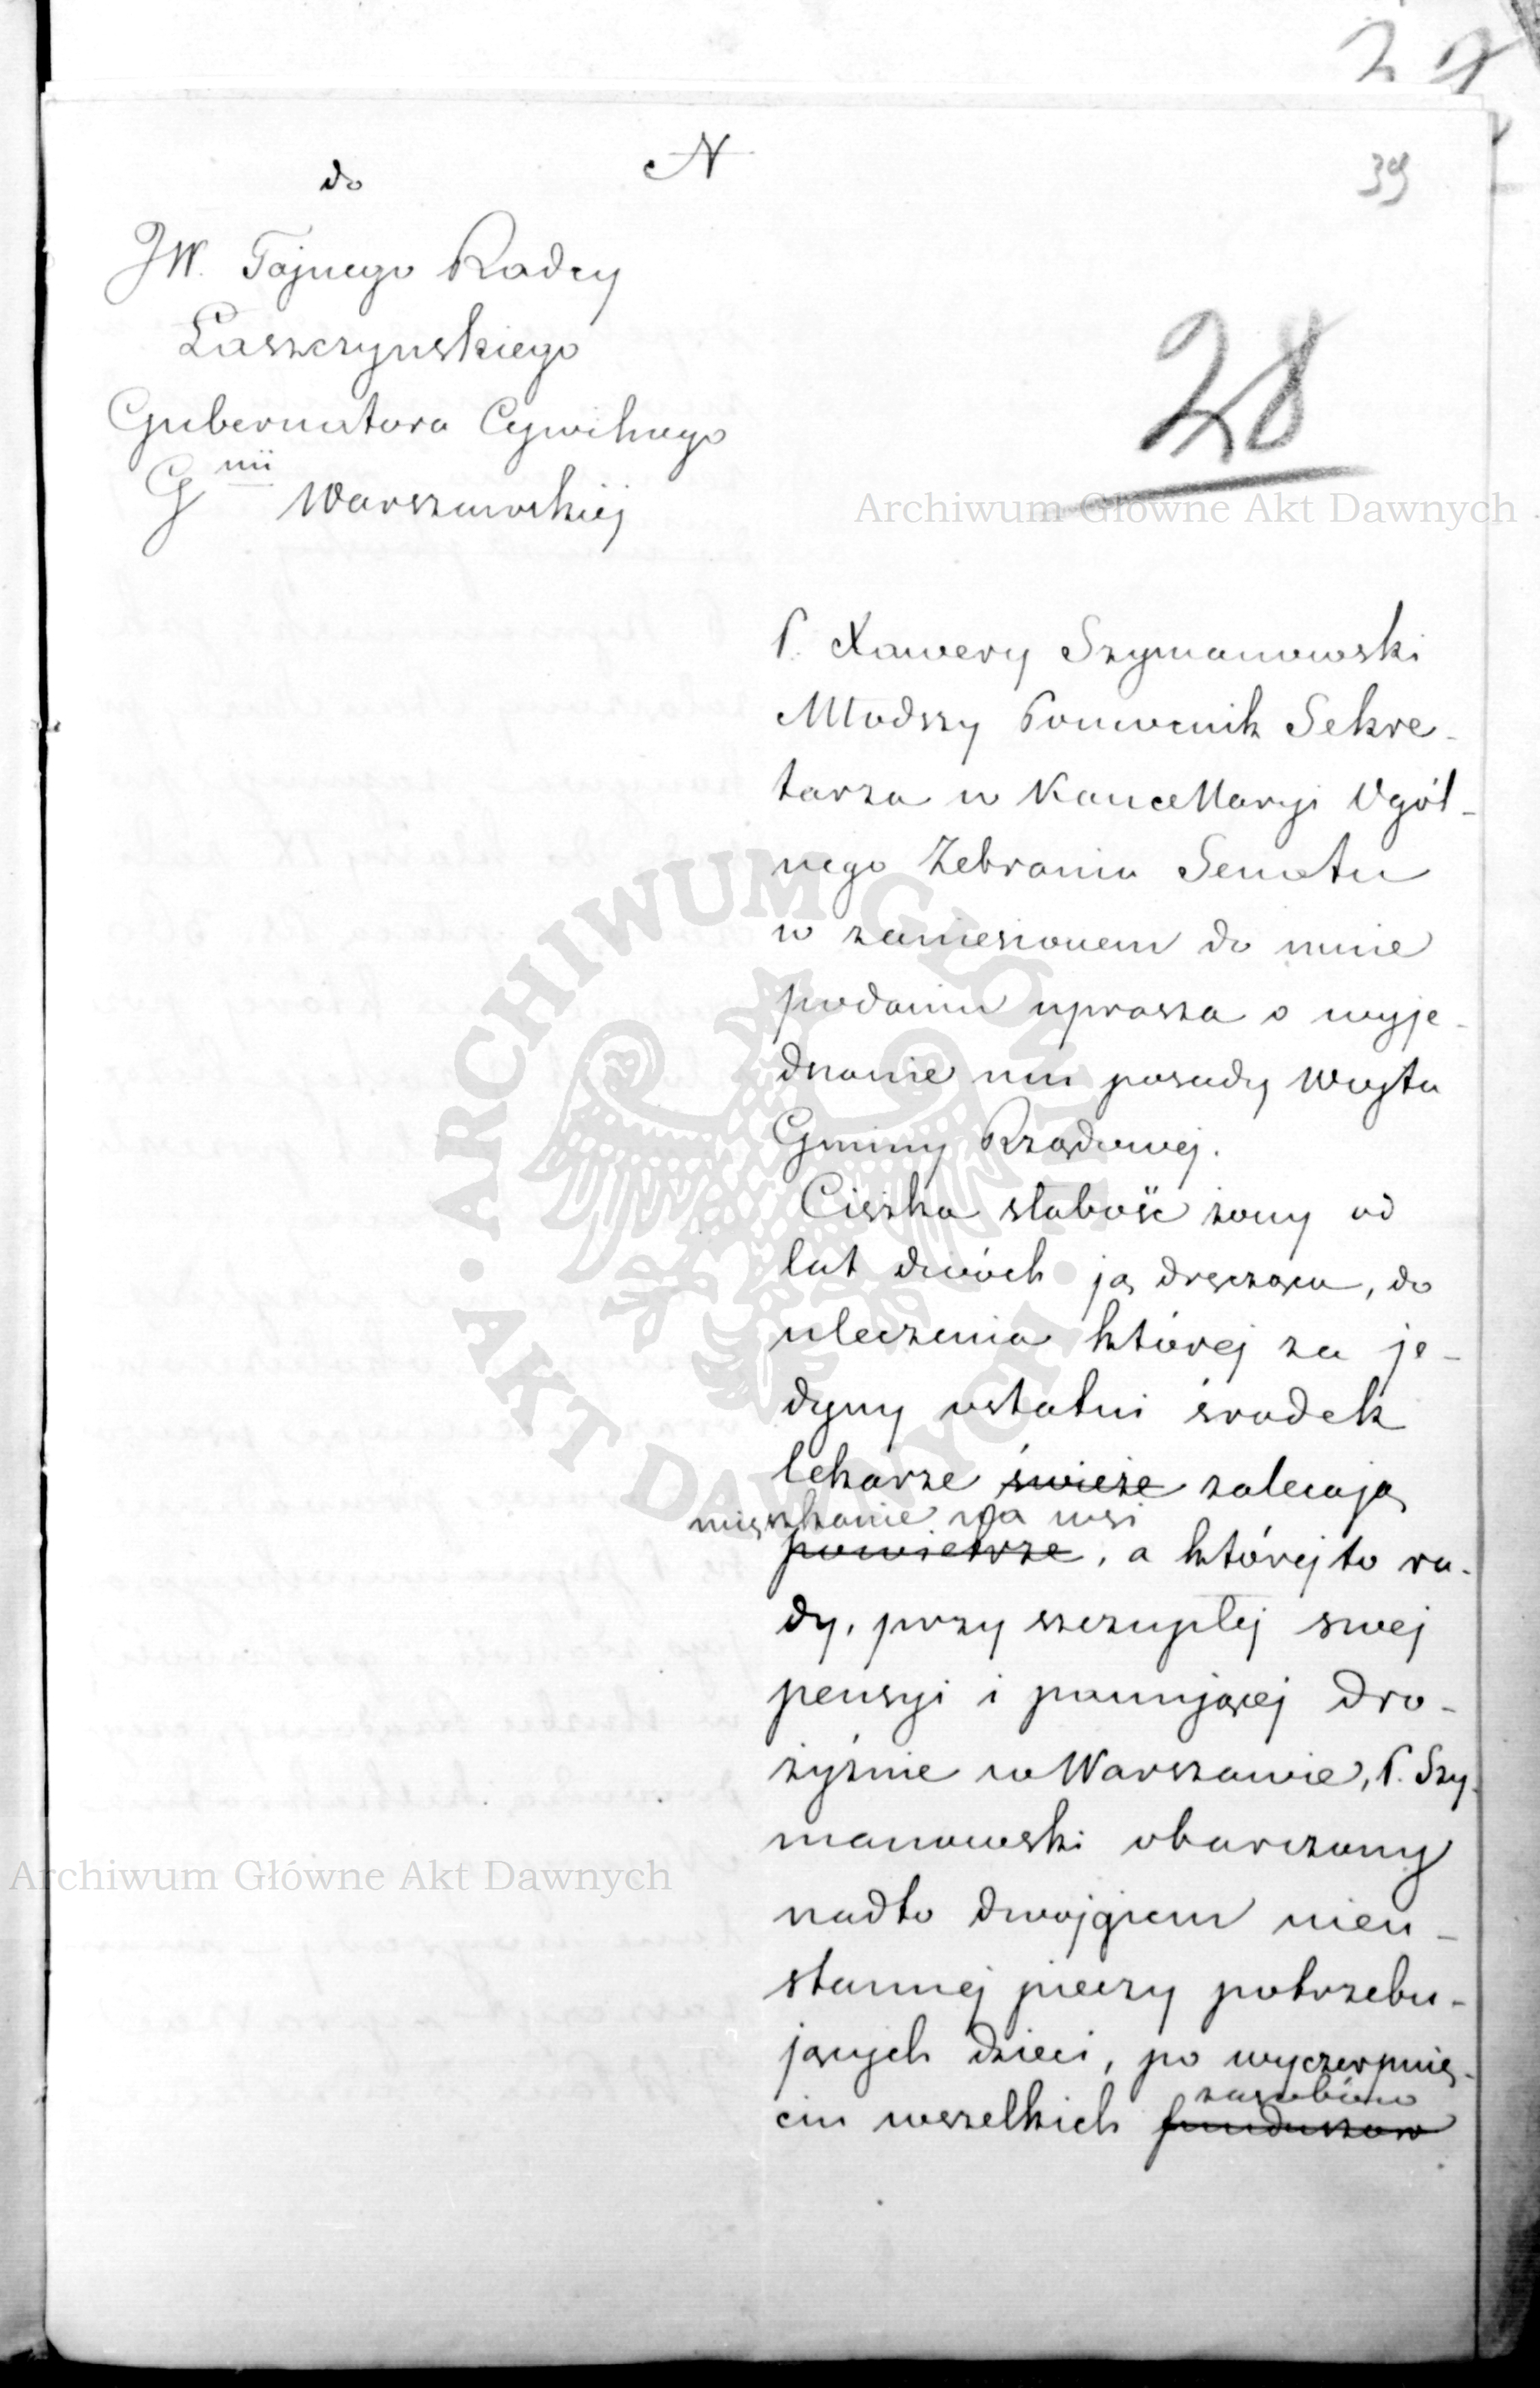 27
39
do N
JW. Tajnego Radcy
Łaszczynskiego
Gubernatora Cywilnego
Gnii Warszawskiej
28
Archiwum Główne Akt Dawnych
P. Xawery Szymanowski
Młodszy Pomocnik Sekre-
tarza w Kancellaryi Ogól-
nego Zebrania Senatu
w zaniesionem do mnie
podaniu uprasza o wyje-
dnanie mu posady Wójta
Gminy Rządowej.
Ciężka słabość żony od
lat dwóch ją dręcząca, do
uleczenia której za je-
dyny ostatni środek
lekarze świeże zalecają
mieszkanie na wsi
powietrze, a którejto ra-
dy, przy szczupłej swej
pensyi i panującej dro-
żyźnie w Warszawie, P. Szy-
manowski obarczony
nadto dwojgiem nieu-
stannej pieczy potrzebu-
jących dzieci, po wyczerpnię-
ciu wszelkich funduszow
zasobów
ARCHIWUM GŁÓWNE • AKT DAWNYCH •
Archiwum Główne Akt Dawnych